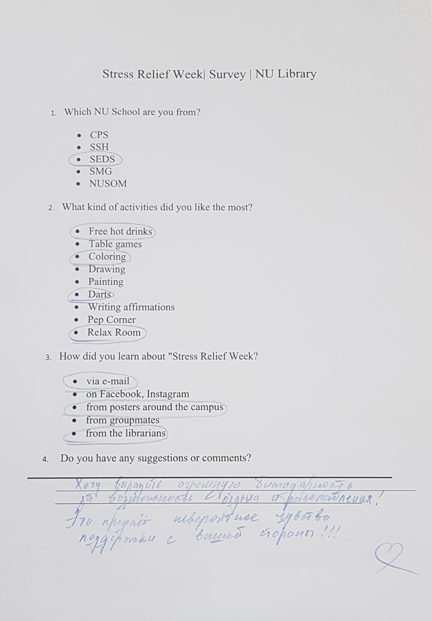 Stress Relief Week| Survey | NU Library
1. Which NU School are you from?
• CPS
• SSH
• SEDS
• SMG
• NUSOM
2. What kind of activities did you like the most?
• Free hot drinks
• Table games
• Coloring
• Drawing
• Painting
• Darts
• Writing affirmations
• Pep Corner
• Relax Room
3. How did you learn about "Stress Relief Week?
• via e-mail
• on Facebook, Instagram
• from posters around the campus
• from groupmates
• from the librarians
4. Do you have any suggestions or comments?
Хочу выразить огромную благодарность
за возможность отдыха и расслабления!
Это придаёт невероятное чувство
поддержки с вашей стороны!!!